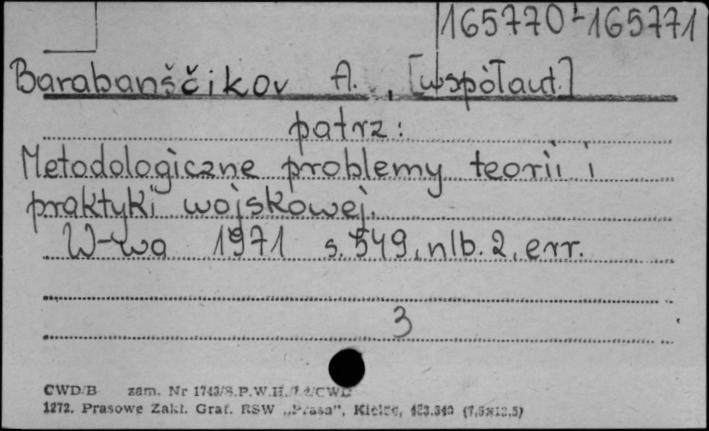 165770-165771
Barabanščikov A., [współaut.]
patrz:
Metodologiczne problemy teorii i
praktyki wojskowej.
W-wa 1971 s. 549, nlb. 2, err.
3
CWD/B zam. Nr 1743/S.P.W.H.
1272. Prasowe Zakł. Graf. RSW „Prasa”, Kielce, (7,5x12,5)